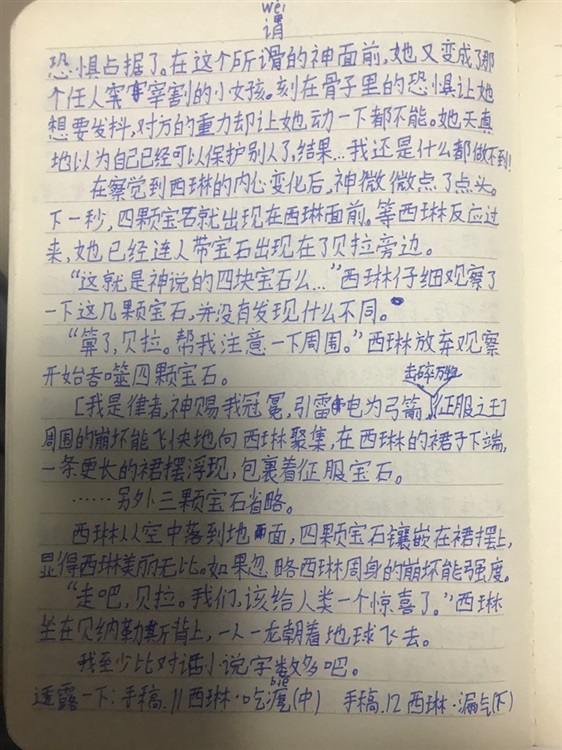 wèi
谓
恐惧占据了。在这个所谓的神面前,她又变成了那
个任人宰割的小女孩。刻在骨子里的恐惧让她
想要发抖,对方的重力却让她动一下都不能。她天真
地以为自己已经可以保护别人了,结果…我还是什么都做不到!
在察觉到西琳的内心变化后,神微微点了点头。
下一秒,四颗宝石就出现在西琳面前。等西琳反应过
来,她已经连人带宝石出现在了贝拉旁边。
“这就是神说的四块宝石么…”西琳仔细观察了
一下这几颗宝石,并没有发现什么不同。
“算了,贝拉。帮我注意一下周围。”西琳放弃观察
开始吞噬四颗宝石。
击碎万物
[我是律者,神赐我冠冕,引雷电为弓箭,征服之王]
周围的崩坏能飞快地向西琳聚集,在西琳的裙子下端,
一条更长的裙摆浮现,包裹着征服宝石。
……另外三颗宝石省略。
西琳从空中落到地面,四颗宝石镶嵌在裙摆上,
显得西琳美丽无比。如果忽略西琳周身的崩坏能强度。
“走吧,贝拉。我们该给人类一个惊喜了。”西琳
坐在贝纳勒斯背上,一人一龙朝着地球飞去。
我至少比对话小说字数多吧。
biě
透露一下:手稿.11西琳·吃瘪(中) 手稿.12西琳·漏气(下)